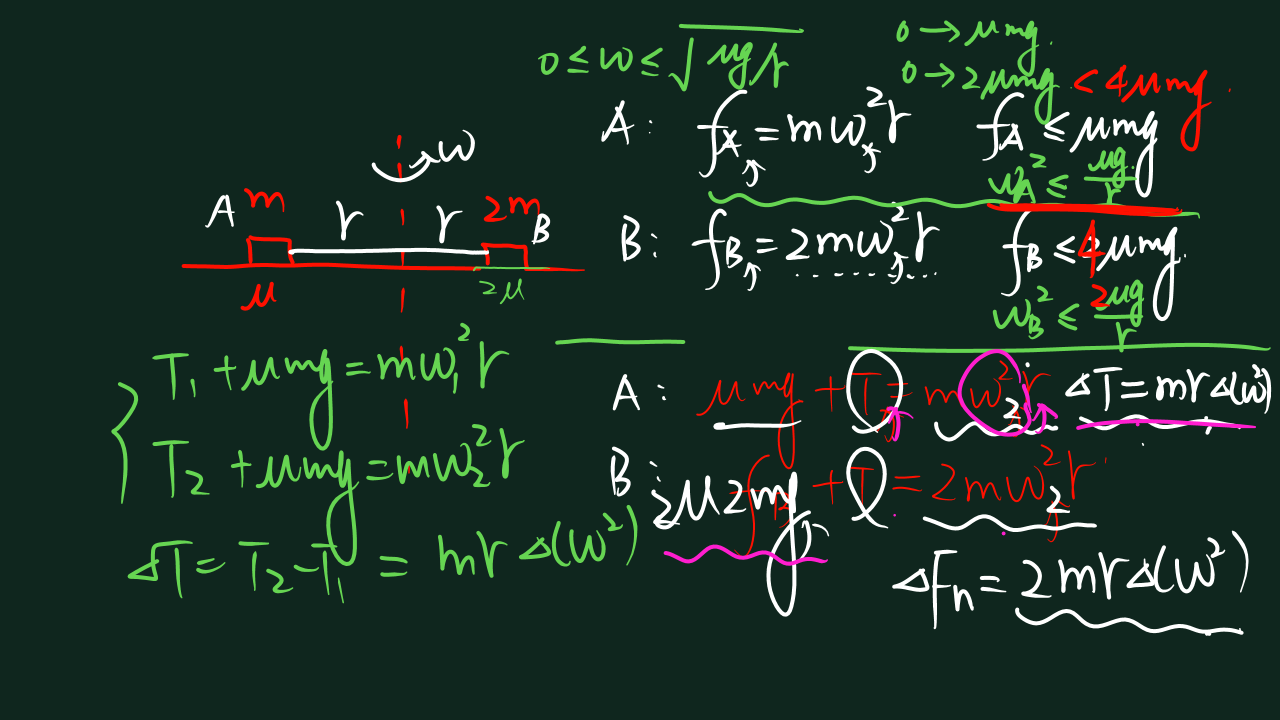 0 ≤ ω ≤ √μg/r
0 → μmg.
0 → 2μmg < 4μmg.
A: f_A = mω²r f_A ≤ μmg
ω_A² ≤ μg/r
ω
A m r r 2m B
μ 2μ
B: f_B = 2mω²r f_B ≤ 4μmg.
ω_B² ≤ 2μg/r
T₁ + μmg = mω₁²r
T₂ + μmg = mω₂²r
ΔT = T₂ - T₁ = mr Δ(ω²)
A: μmg + T = mω₂²r ΔT = mrΔ(ω²)
B: 2μ2mg + T = 2mω₂²r
ΔFn = 2mrΔ(ω²)